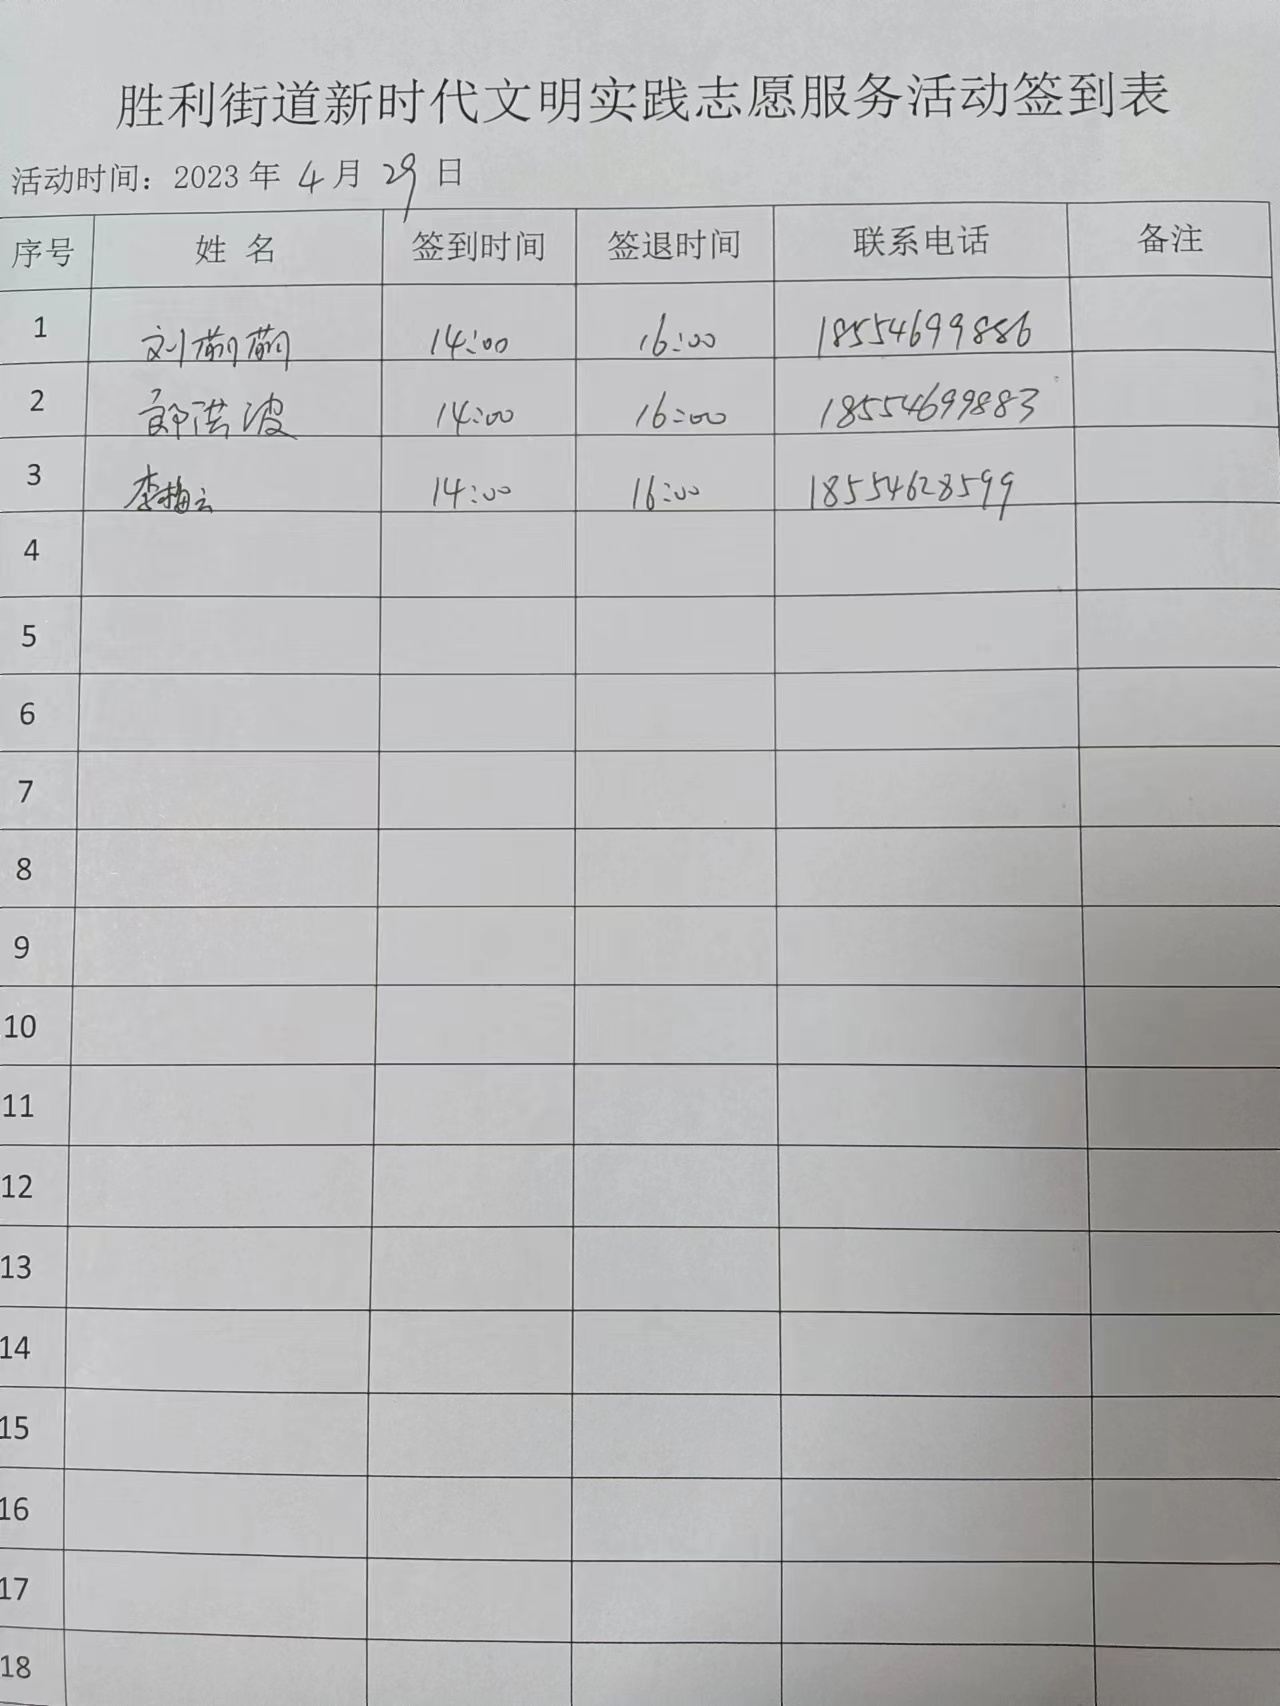 胜利街道新时代文明实践志愿服务活动签到表
活动时间：2023 年 4 月 29 日
序号 姓 名 签到时间 签退时间 联系电话 备注
1 刘 14:00 16:00 18554699886
2 郭洪波 14:00 16:00 18554699883
3 李梅云 14:00 16:00 18554628599
4
5
6
7
8
9
10
11
12
13
14
15
16
17
18